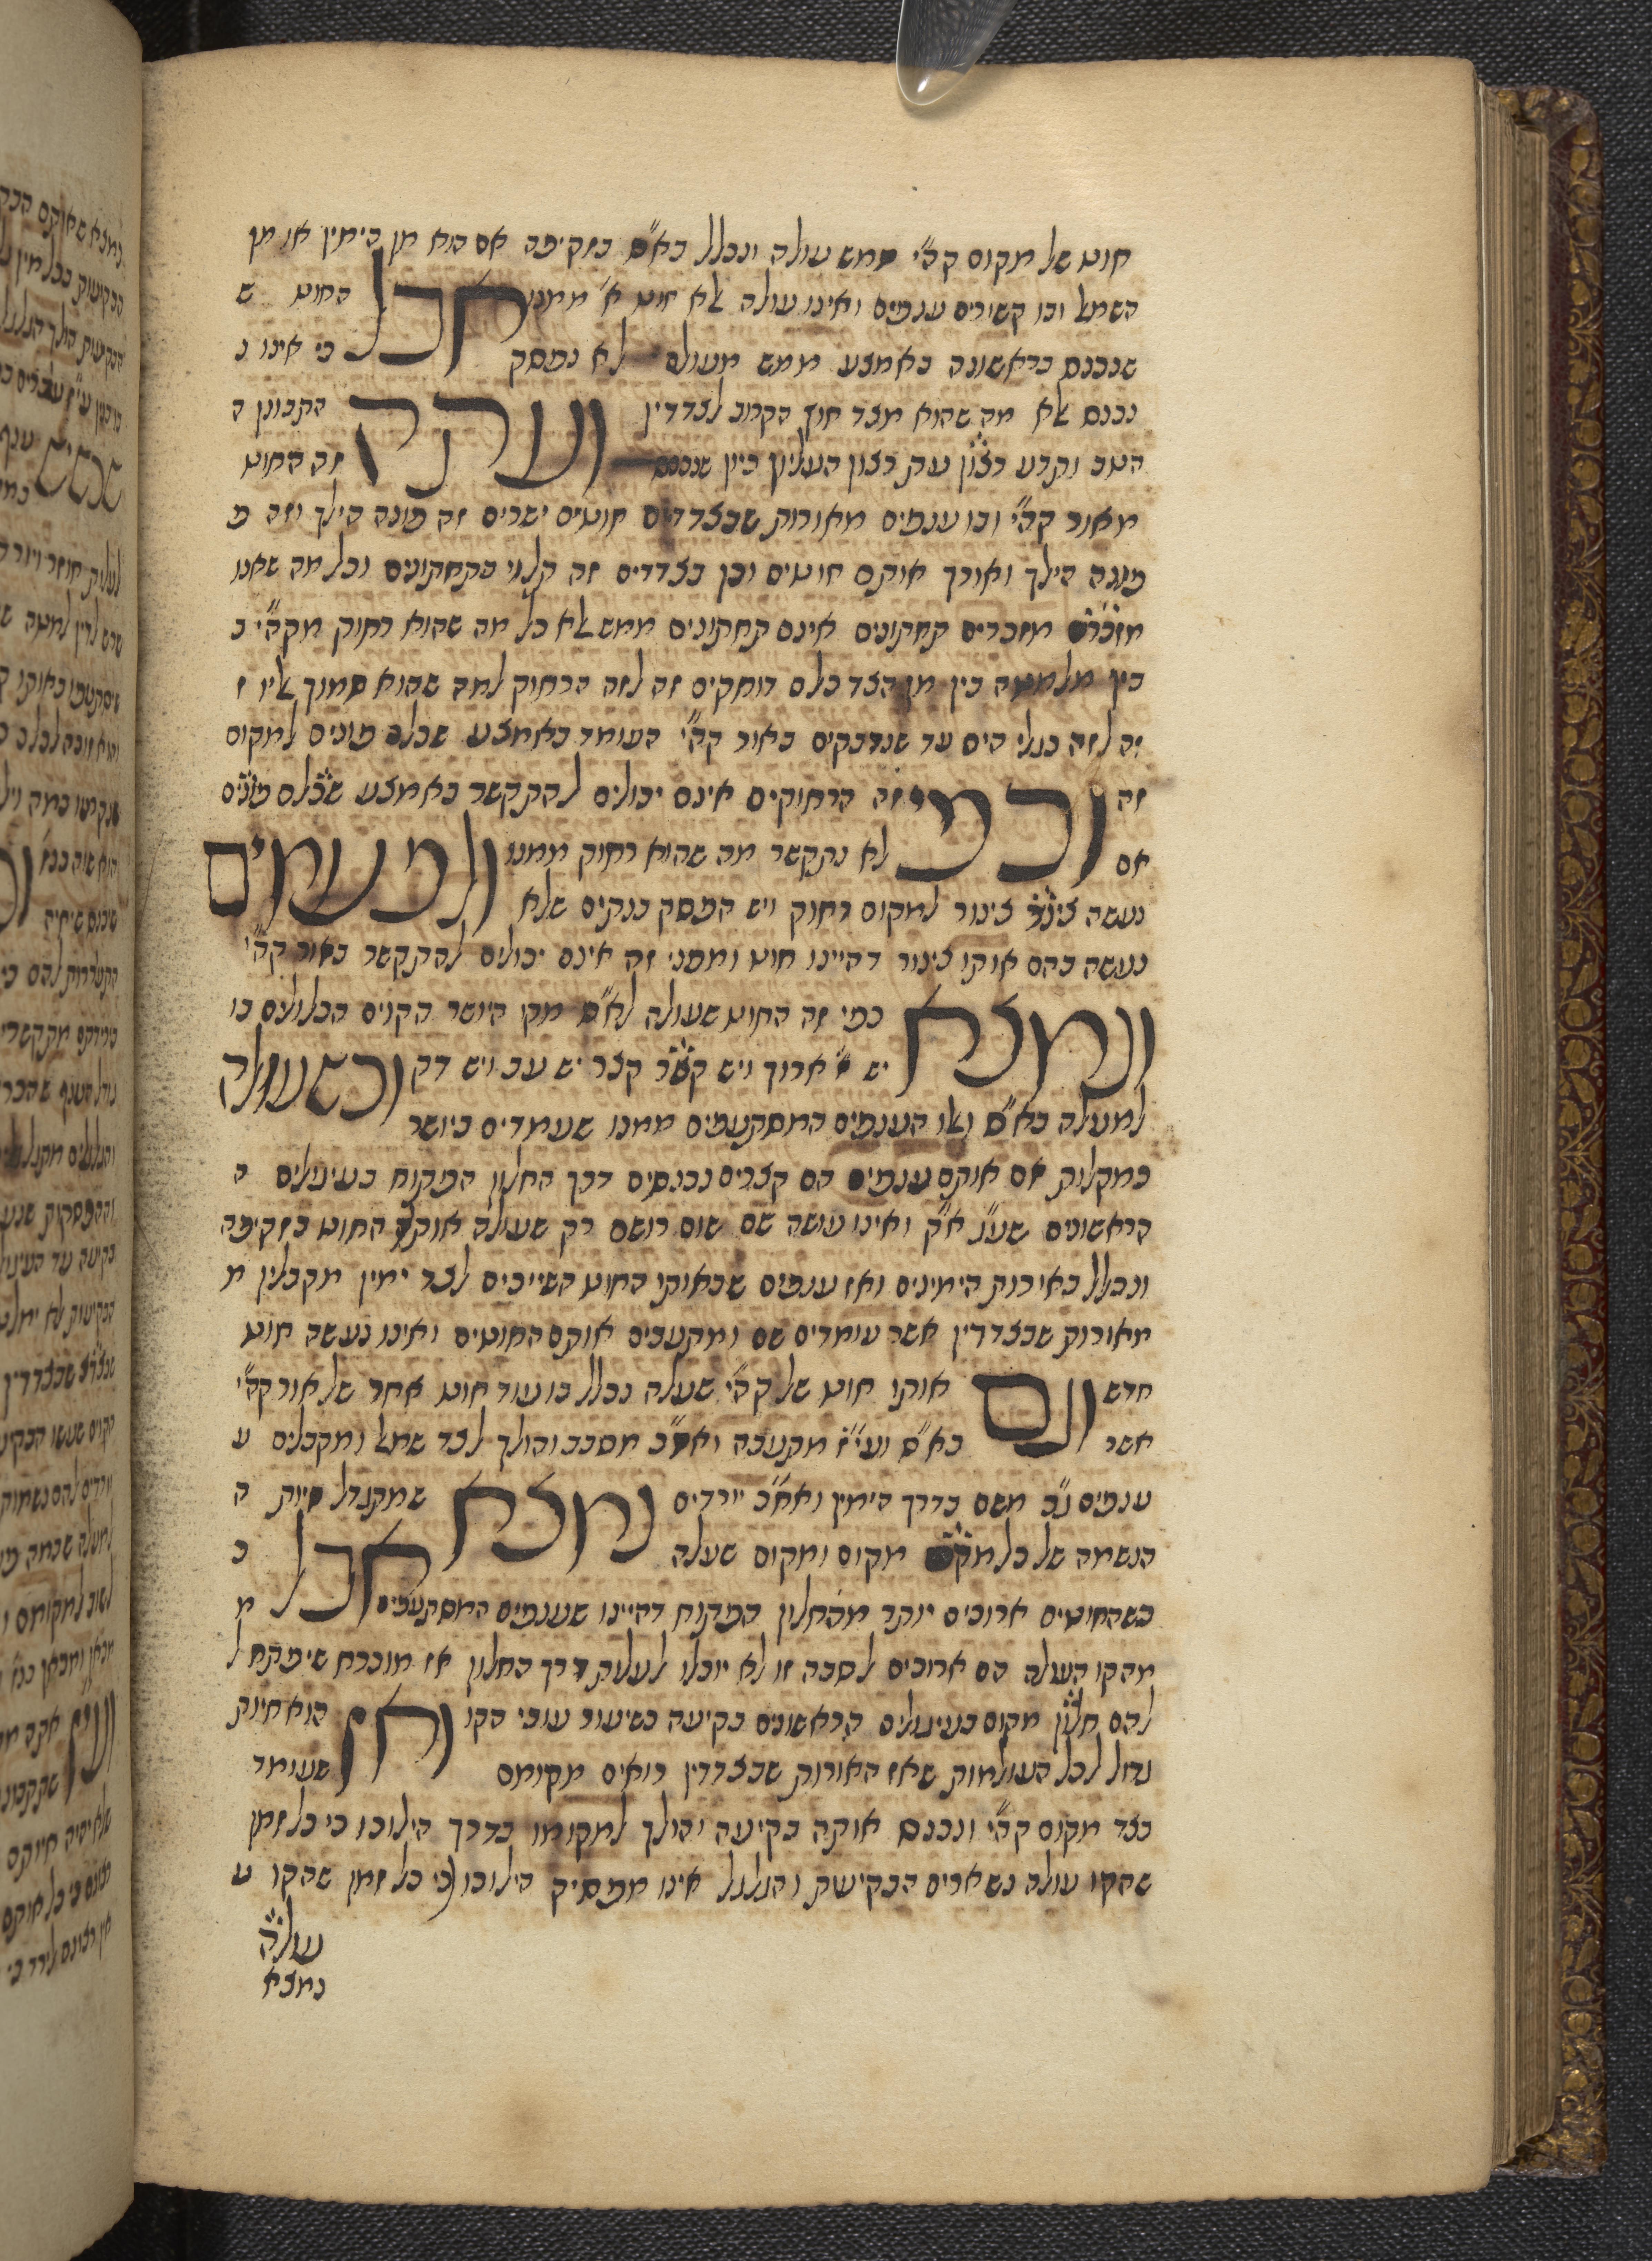 חוט של מקום קה"י ממש עולה ונכלל בא"ס בזקיפה אם הוא מן הימין או מן
השמאל ובו קשורים ענפים ואינו עולה אלא חוט א' ממנו אבל החוט ש
שנכנס בראשונה באמצע ממש מעולם לא נפסק כי אינו נ
נכנס אלא מה שהוא מצד חוץ הקרוב לצדדין ועתה התבונן ה
היטב ותדע רצון עת רצון העליון כיון שנכנס זה החוט
מאור קה"י ובו ענפים מאורות שבצדדים חוטים ישרים זה פונה הילך וזה פ
פונה הילך ואורך אותם חוטים וכן בצדדים זה תלוי בתחתונים וכל מה שאנו
מזכירים תחתונים אינם תחתונים ממש אלא כל מה שהוא רחוק מקה"י ב
בין מלמטה בין מן הצד כלם דוחקים זה לזה הרחוק למה שהוא סמוך אליו ז
זה לזה כגלי הים עד שנדבקים באור קה"י העומד באמצע שכלם פונים למקום
זה וכפי זה הרחוקים אינם יכולים להתקשר באמצע שכלם פונים
אם לא נתקשר מה שהוא רחוק ממנו ולפעמים
נעשה צינור למקום רחוק ויש הפסק בנתים שלא
נעשה בהם אותו צינור דהיינו חוט ומפני זה אינם יכולים להתקשר באור קה"י
ונמצא כפי זה החוט שעולה לא"ס מקו היושר הקוים הכלולים בו
יש ארוך ויש קצר יש עב ויש דק וכשעולה
למעלה בא"ס ואלו הענפים המסתעפים ממנו שעמדים ביושר
כמקלות אם אותם ענפים הם קצרים נכנסים דרך החלון הפתוח בעיגולים ה
הראשונים שע"ג א"ק ואינו עושה שם שום רושם רק שעולה אותו החוט בזקיפה
ונכלל באירות הימינים ואז ענפים שבאותו החוט השייכים לצד ימין מקבלין מ
מאורות שבצדדין אשר עומדים שם ומתעבים אותם החוטים ואינו נעשה חוט
חדש וגם אותו חוט של קה"י שעלה נכלל בו עוד חוט אחד של אור קה"י
אשר בא"ס ועי"ז מתעבה ואח"כ מסבב והולך לצד שמאל ומקבלים ע
ענפים ג"כ משם כדרך הימין ואח"כ יורדים נמצא שמתגדל חיות ה
הנשמה של כל מקום ומקום שעלה אבל כ
כשהחוטים ארוכים יותר מהחלון הפתוח דהיינו שענפים המסתעפים מ
מהקו העולה הם ארוכים לסבה זו לא יוכלו לעלות דרך החלון אז מוכרח שיפתח ל
להם חלון מקום בעיגולים הראשונים בקיעה כשיעור עובי הקו ואז הוא חיות
גדול לכל העולמות שאז האורות שבצדדין רואים מקומם שעומד
בצד מקום קה"י ונכנס אותה בקיעה והולך למקומו כדרך הילוכו כי כל זמן
שהקו עולה נשארים הבקיעות והגלגל אינו מפסיק הילוכו (כי כל זמן שהקו ע
עולה
נמצא